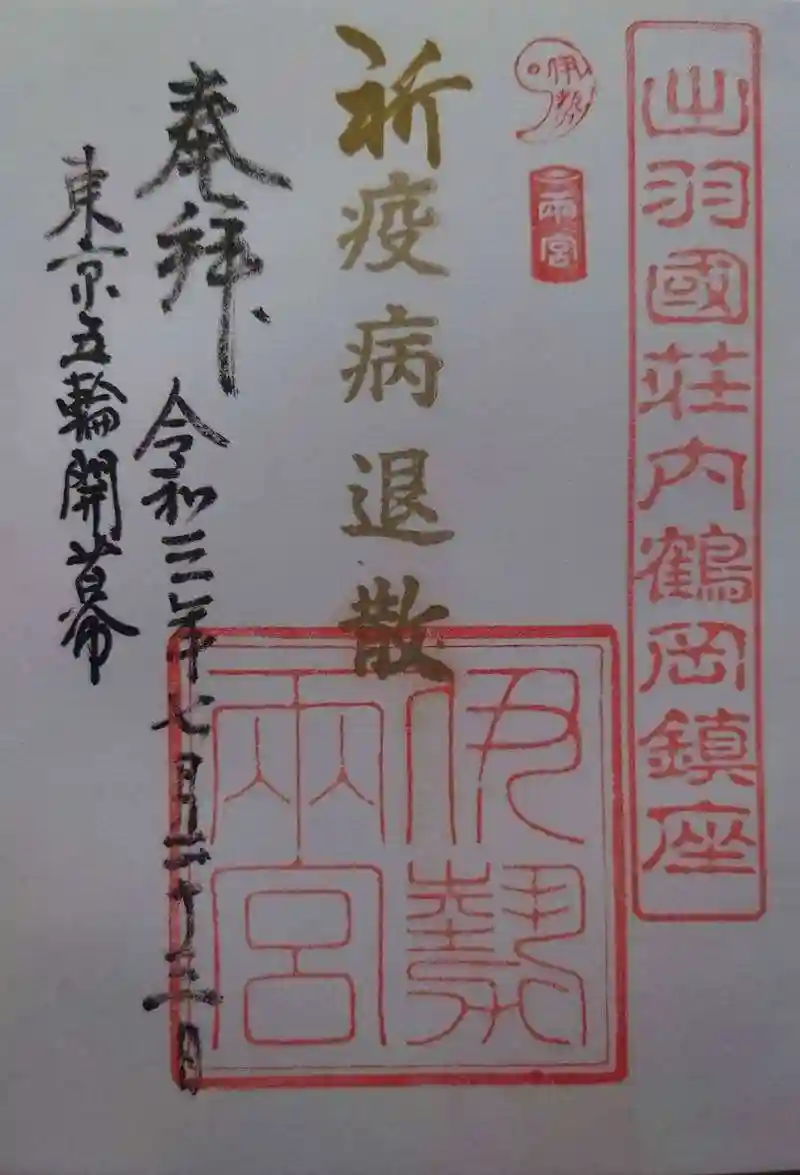 出羽國荘内鶴岡鎮座
伊勢
両宮
祈疫病退散
伊勢
兩宮
奉拝
令和三年七月二十三日
東京五輪開幕